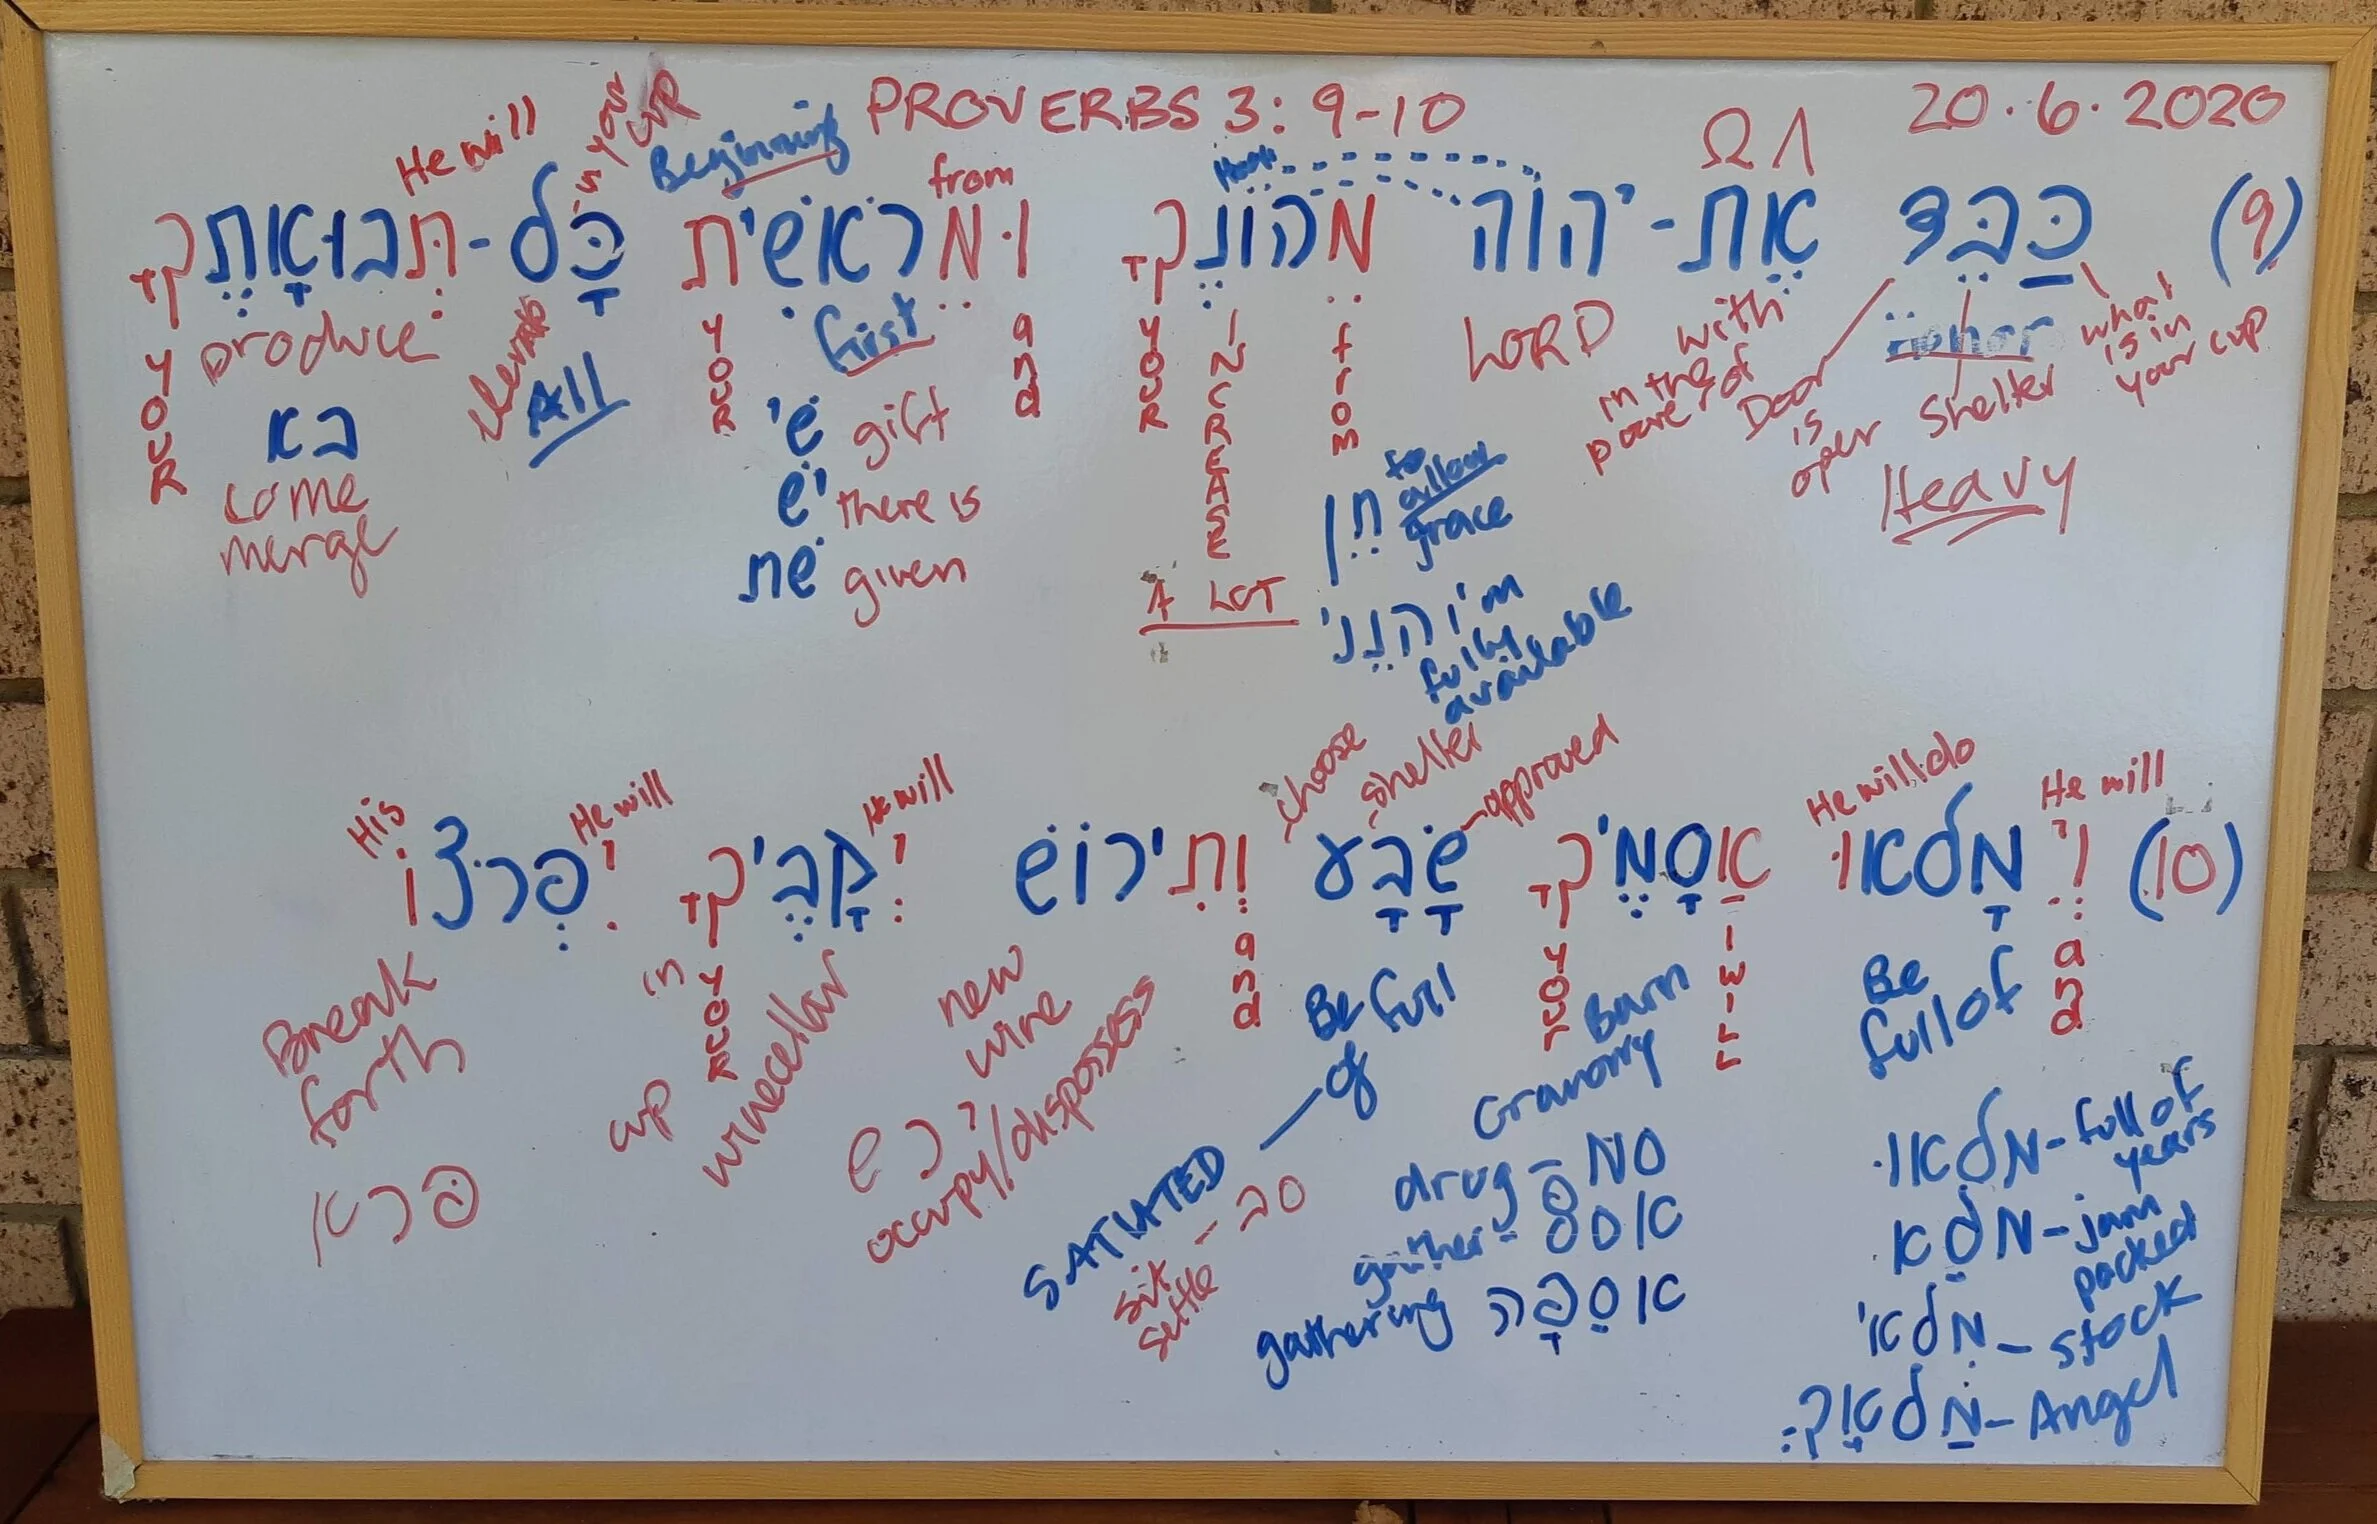 PROVERBS 3: 9-10
20.6.2020
Ω Λ
He will
is your cup
Beginning
from
(9) כַּבֵּד אֶת-יהוה מֵהוֹנֶךָ וּמֵרֵאשִׁית כָּל-תְּבוּאָתֶךָ
what is in your cup
Honor
Shelter
Door is open
Heavy
with
in the power of
LORD
from
INCREASE
YOUR
A LOT
and
first
YOUR
All
produce
YOUR
חן to allow grace
הנני I'm fully available
שי gift
יש there is
שת given
בא
come
merge
He will
He will do
approved
shelter
choose
He will
He will
His
(10) וְיִמָּלְאוּ אֲסָמֶיךָ שָׂבָע וְתִירוֹשׁ יְקָבֶיךָ יִפְרֹצוּ
and
Be full of
I WILL
Barn
Granary
YOUR
Be full of
SATIATED
and
new wine
winecellar
YOUR
in
cup
Break forth
מלאו - full of years
מלא - jam packed
מלאי - stock
מלאך - Angel
drug - סם
gather - אסף
gathering אספה
סב - sit settle
ירש
occupy/dispossess